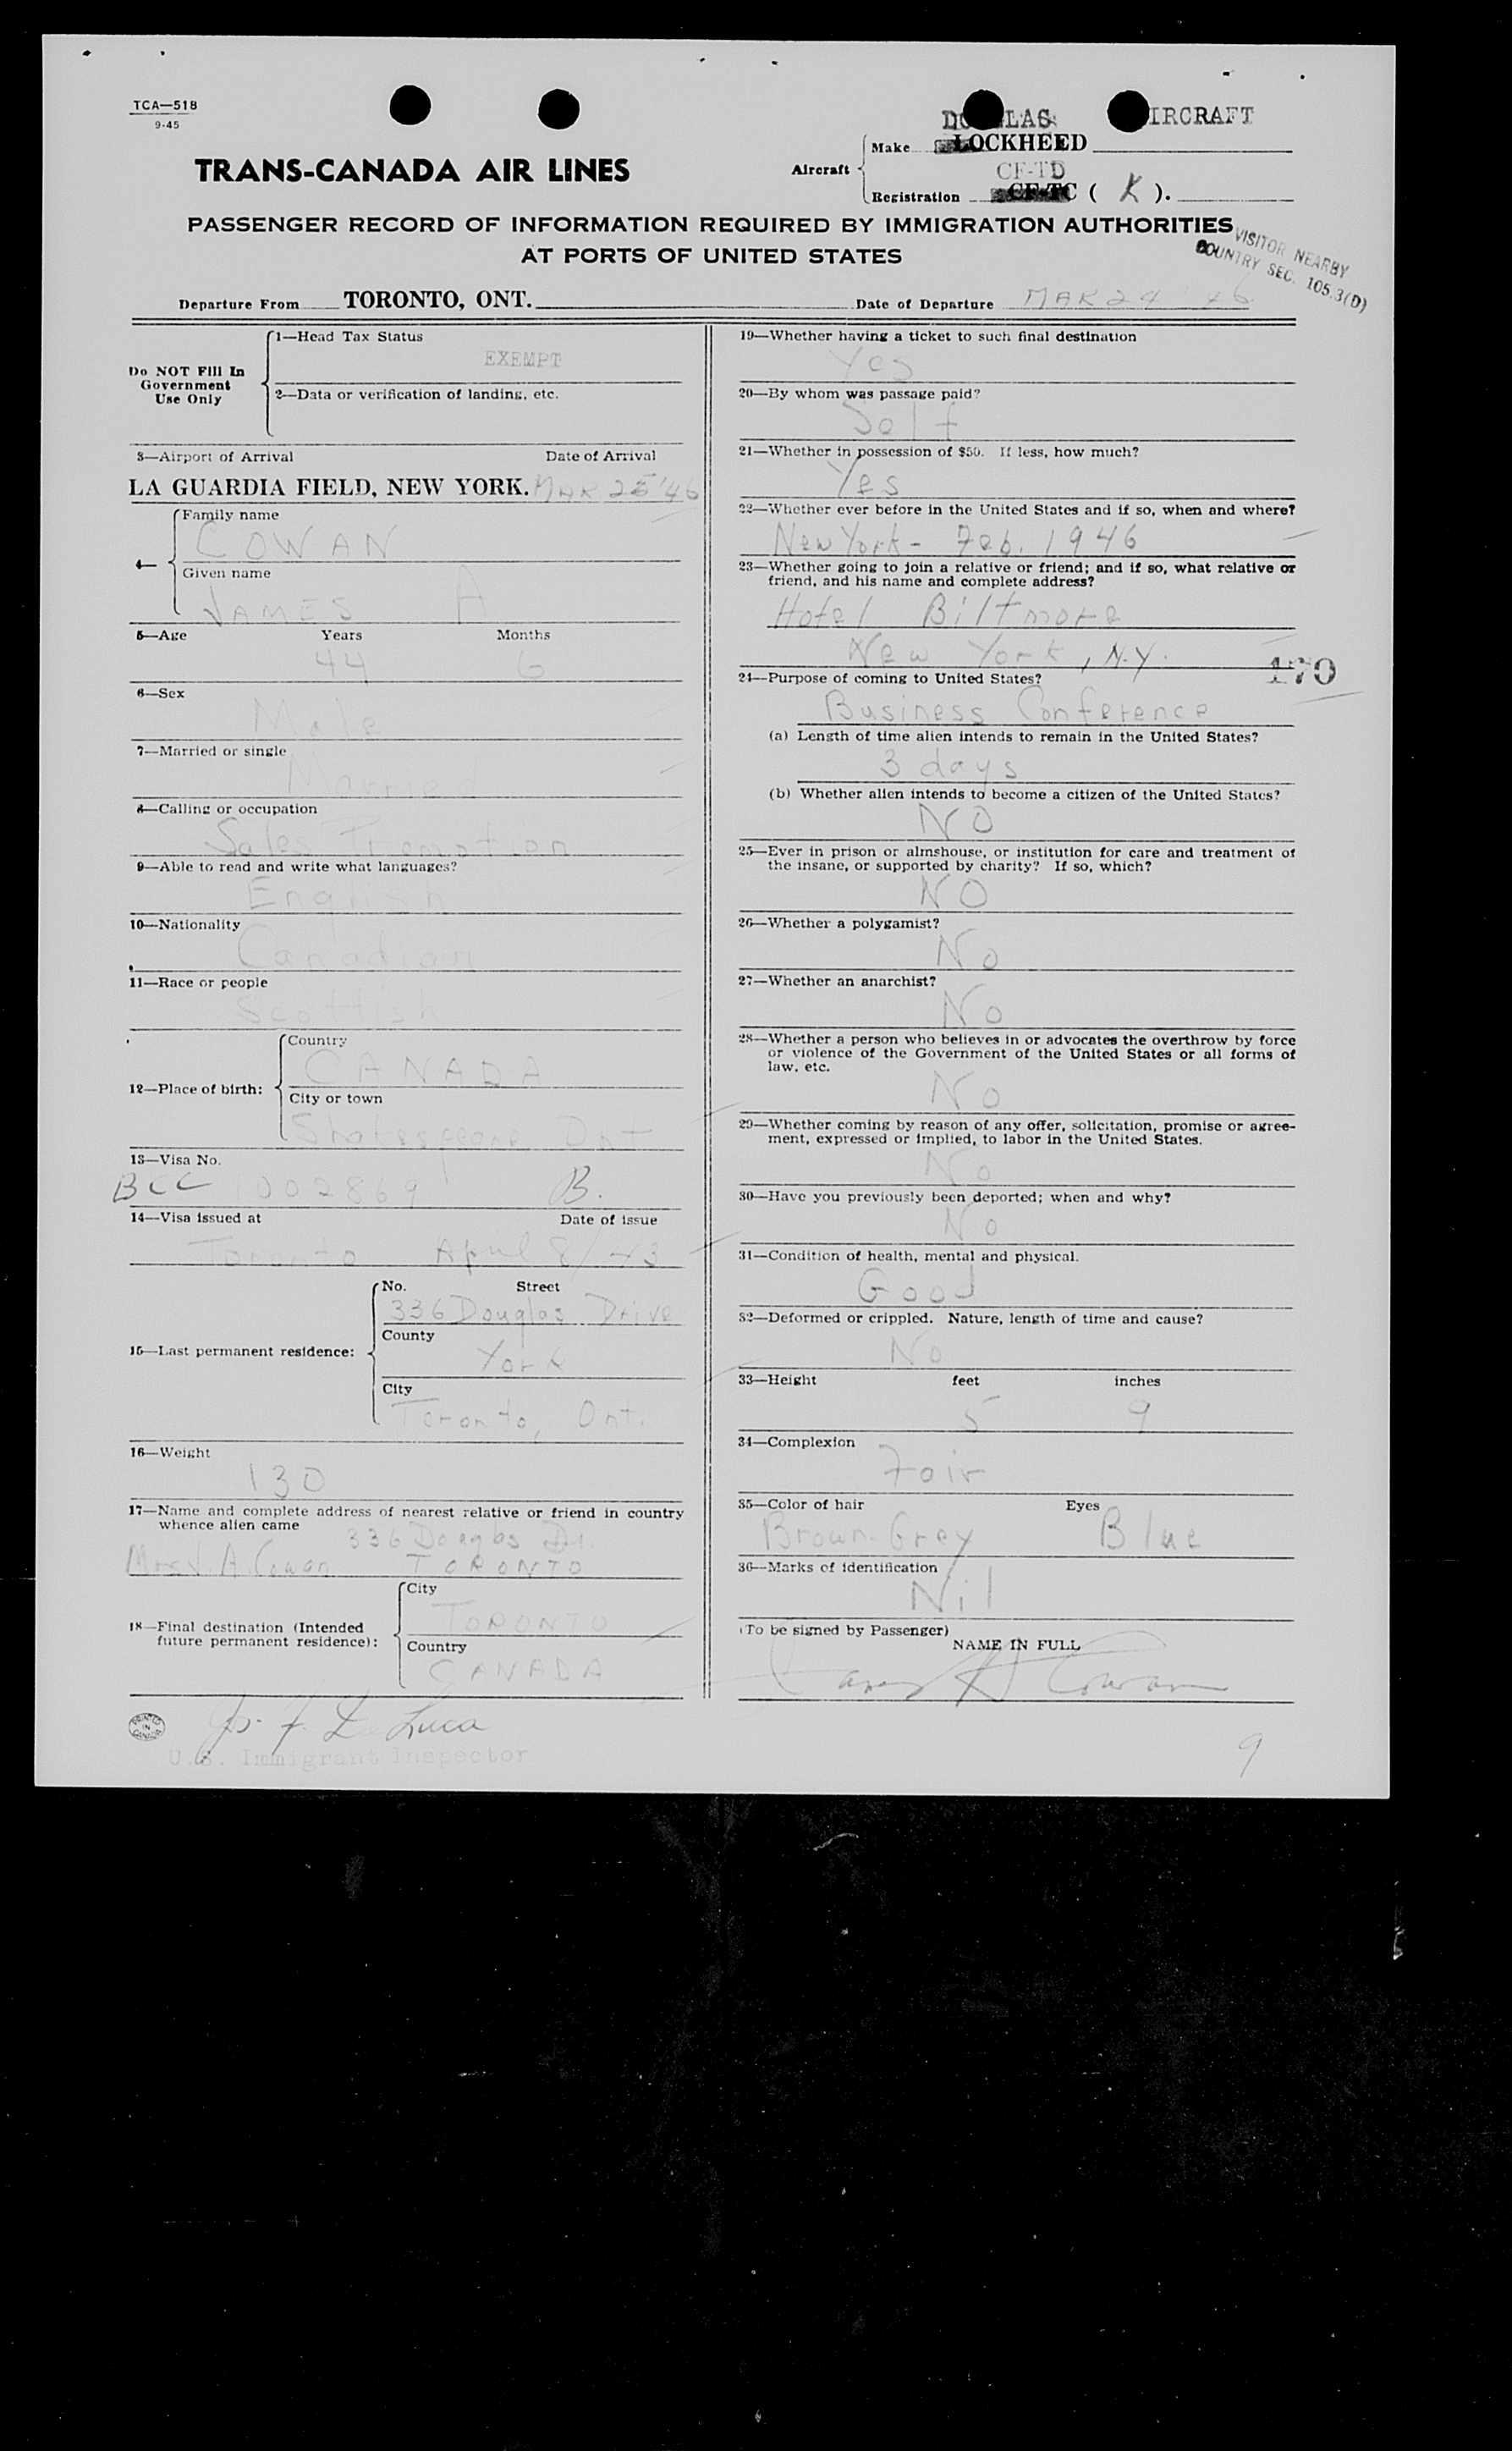 TCA—518
9-45
DOUGLAS AIRCRAFT
TRANS-CANADA AIR LINES
Aircraft
Make LOCKHEED
CF-TD
Registration CF-TC ( K ).
PASSENGER RECORD OF INFORMATION REQUIRED BY IMMIGRATION AUTHORITIES
AT PORTS OF UNITED STATES
VISITOR NEARBY
COUNTRY SEC. 105.3(D)
Departure From TORONTO, ONT. Date of Departure MAR 24 '46
Do NOT Fill In
Government
Use Only
1—Head Tax Status
EXEMPT
2—Data or verification of landing, etc.
3—Airport of Arrival Date of Arrival
LA GUARDIA FIELD, NEW YORK. MAR 25 '46
4—
Family name
COWAN
Given name
JAMES A
5—Age Years Months
44 6
6—Sex
Male
7—Married or single
Married
8—Calling or occupation
Sales Promotion
9—Able to read and write what languages?
English
10—Nationality
Canadian
11—Race or people
Scottish
12—Place of birth:
Country
CANADA
City or town
Shakespeare Ont
13—Visa No.
BCC 1002869 B.
14—Visa issued at Date of issue
Toronto April 8/43
15—Last permanent residence:
No. Street
336 Douglas Drive
County
York
City
Toronto, Ont.
16—Weight
130
17—Name and complete address of nearest relative or friend in country
whence alien came
336 Douglas Dr.
Mrs J. A. Cowan TORONTO
18—Final destination (Intended
future permanent residence):
City
TORONTO
Country
CANADA
U.S. Immigrant Inspector
PRINTED
IN
CANADA
19—Whether having a ticket to such final destination
Yes
20—By whom was passage paid?
Self
21—Whether in possession of $50. If less, how much?
Yes
22—Whether ever before in the United States and if so, when and where?
New York - Feb. 1946
23—Whether going to join a relative or friend; and if so, what relative or
friend, and his name and complete address?
Hotel Biltmore
New York, N.Y.
170
24—Purpose of coming to United States?
Business Conference
(a) Length of time alien intends to remain in the United States?
3 days
(b) Whether alien intends to become a citizen of the United States?
NO
25—Ever in prison or almshouse, or institution for care and treatment of
the insane, or supported by charity? If so, which?
NO
26—Whether a polygamist?
No
27—Whether an anarchist?
No
28—Whether a person who believes in or advocates the overthrow by force
or violence of the Government of the United States or all forms of
law, etc.
No
29—Whether coming by reason of any offer, solicitation, promise or agree-
ment, expressed or implied, to labor in the United States.
No
30—Have you previously been deported; when and why?
No
31—Condition of health, mental and physical.
Good
32—Deformed or crippled. Nature, length of time and cause?
No
33—Height feet inches
5 9
34—Complexion
Fair
35—Color of hair Eyes
Brown-Grey Blue
36—Marks of identification
Nil
(To be signed by Passenger)
NAME IN FULL
James A Cowan
9